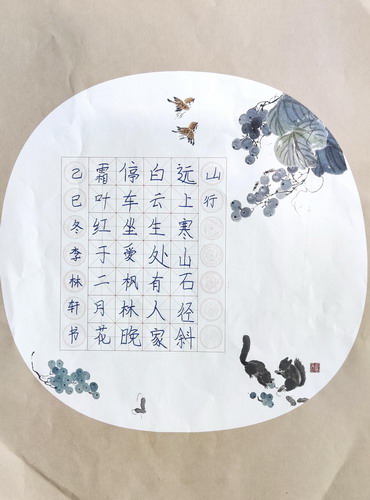 山行
远上寒山石径斜
白云生处有人家
停车坐愛枫林晚
霜叶红于二月花
己巳冬季林轩书